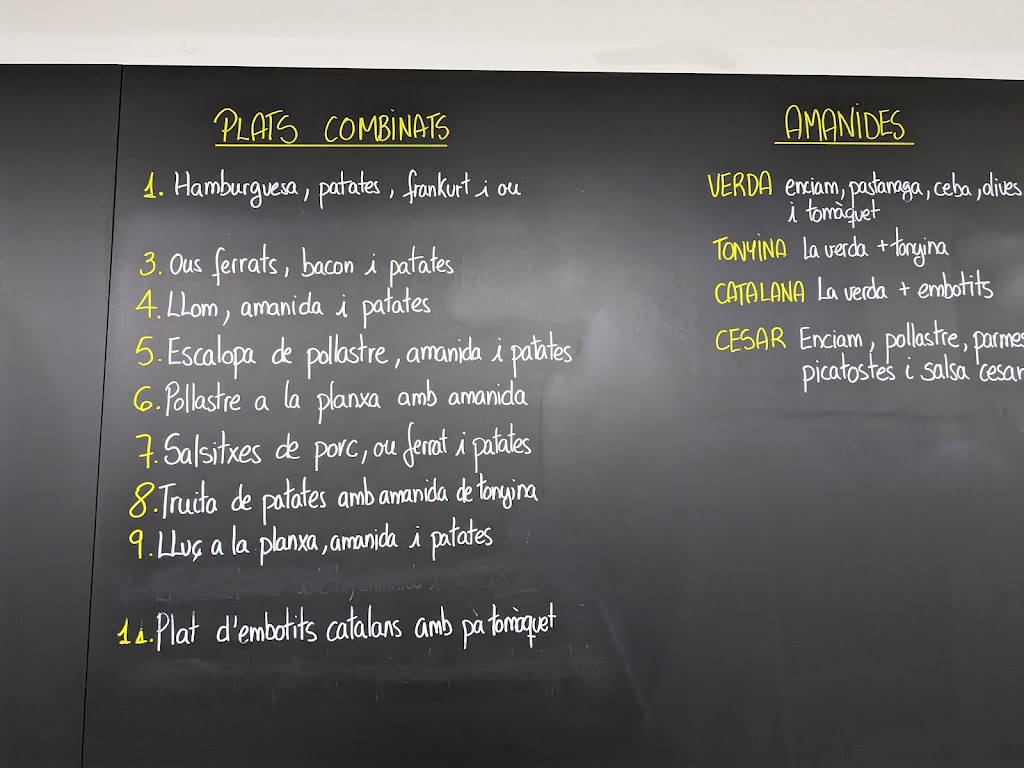 PLATS COMBINATS
1. Hamburguesa, patates, frankurt i ou
3. Ous ferrats, bacon i patates
4. Llom, amanida i patates
5. Escalopa de pollastre, amanida i patates
6. Pollastre a la planxa amb amanida
7. Salsitxes de porc, ou ferrat i patates
8. Truita de patates amb amanida de tonyina
9. Lluç a la planxa, amanida i patates
11. Plat d'embotits catalans amb pà tomàquet
AMANIDES
VERDA enciam, pastanaga, ceba, olives
i tomàquet
TONYINA La verda + tonyina
CATALANA La verda + embotits
CESAR Enciam, pollastre, parmes
picatostes i salsa cesar